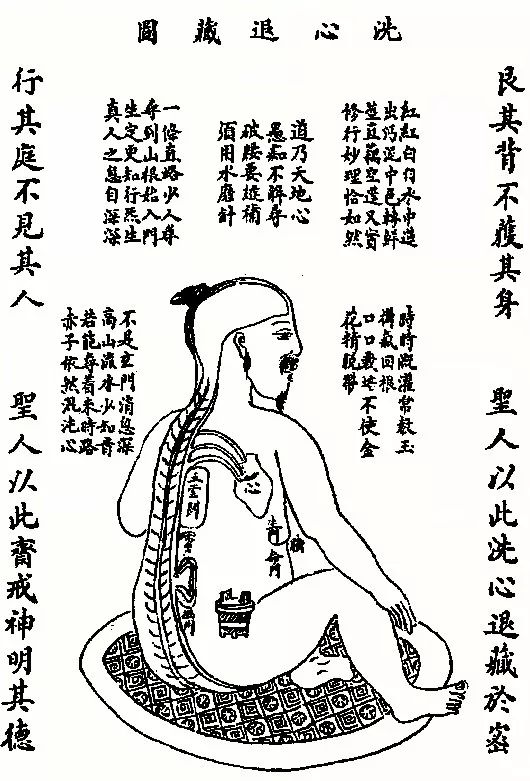 洗心退藏圖
艮其背不獲其身
聖人以此洗心退藏於密
紅紅白白水中蓮
出汚泥中色轉鮮
莖直藕空蓬又實
修行妙理恰如然
道乃天地心
愚痴不解尋
破腰要縫補
須用水磨針
一條直路少人尋
尋到山根始入門
坐定更知行炁主
真人之息自深深
時時溉灌常教玉
樹氣回根
日日栽培不使金
花精脫蒂
不是玄門消息深
高山流水少知音
若能尋着來時路
赤子依然混沌心
行其庭不見其人
聖人以此齋戒神明其德
心
命門